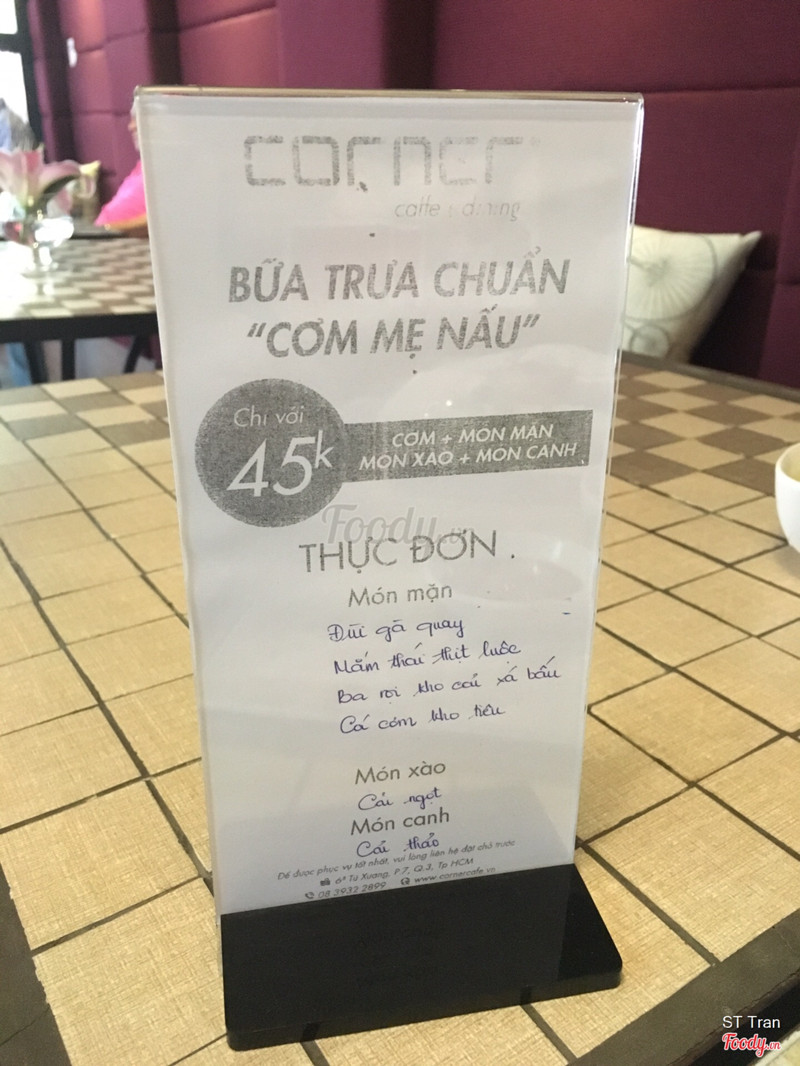 corner
caffe & dining
BỮA TRƯA CHUẨN
“CƠM MẸ NẤU”
Chỉ với
45k
CƠM + MÓN MẶN
MÓN XÀO + MÓN CANH
Foody.vn
THỰC ĐƠN
Món mặn
Đùi gà quay
Mắm thái thịt luộc
Ba rọi kho cải xá bấu
Cá cơm kho tiêu
Món xào
Cải ngọt
Món canh
Cải thảo
Để được phục vụ tốt nhất, vui lòng liên hệ đặt chỗ trước
6ᴬ Tú Xương, P.7, Q.3, Tp HCM
08 3932 2899 www.cornercafe.vn
ST Tran
Foody.vn